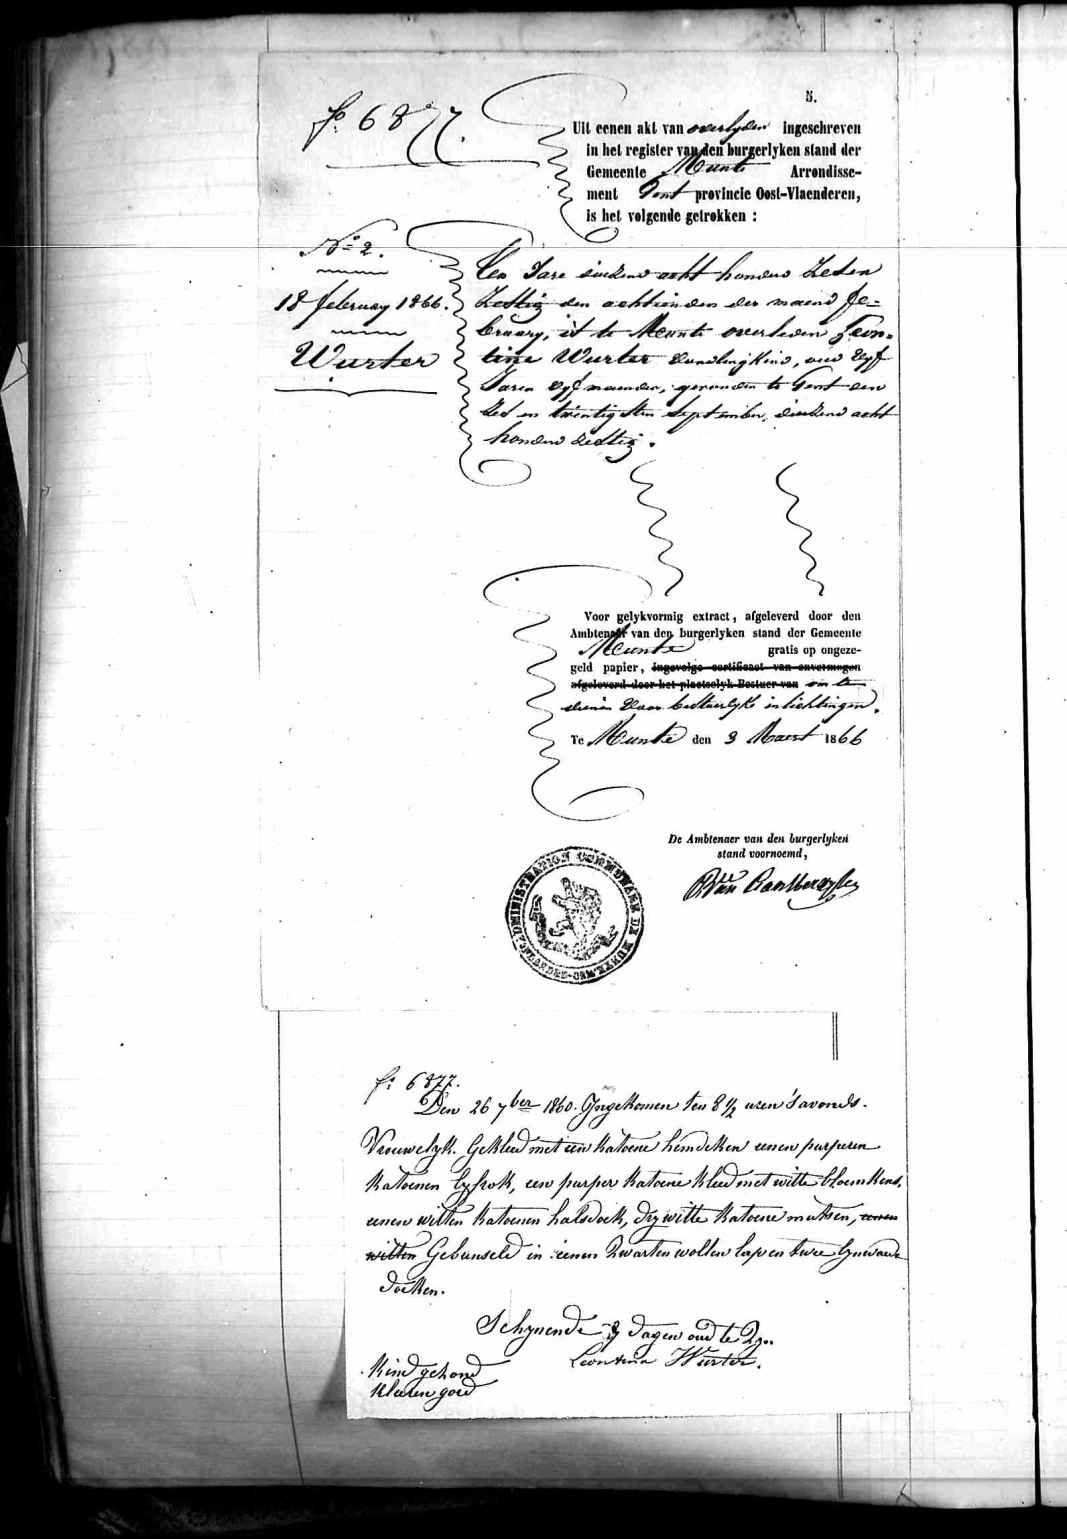 5.
f° 6877.
Uit eenen akt van overlyden ingeschreven
in het register van den burgerlyken stand der
Gemeente Munte Arrondisse-
ment Gent provincie Oost-Vlaenderen,
is het volgende getrokken :
N° 2.
18 february 1866.
Wurter
Ten Jare duizend acht honderd zesen
Zestig den achtienden der maend fe=
bruary, is te Munte overleden Leon=
tine Wurter vondlingkind, oud vyf
Jaren vyf maenden, gevonden te Gent den
zes en twintigsten September, duizend acht
honderd zestig.
Voor gelykvormig extract, afgeleverd door den
Ambtenaer van den burgerlyken stand der Gemeente
Munte gratis op ongeze-
geld papier, ingevolge certificaet van onvermogen
afgeleverd door het plaetselyk Bestuer van om te
dienen voor bestuerlyke inlichtingen.
Te Munte den 3 Maert 1866
De Ambtenaer van den burgerlyken
stand voornoemd,
ADMINISTRATION COMMUNALE DE MUNTE
f° 6877.
Den 26 7ber 1860. Ingekomen ten 8 1/2 uren 's avonds.
Vrouwelyk. Gekleed met een katoene hemdeken eenen purperen
katoenen lyfrok, een purper katoene kleed met witte bloemkens,
eenen witten katoenen halsdoek, dry witte katoene mutsen, eenen
witten Gebunseld in eenen zwarten wollen lap en twee lynwaede
doeken.
Schynende 8 dagen oud te zyn.
Leontina Wurter.
Kind gezond
kleeren goed